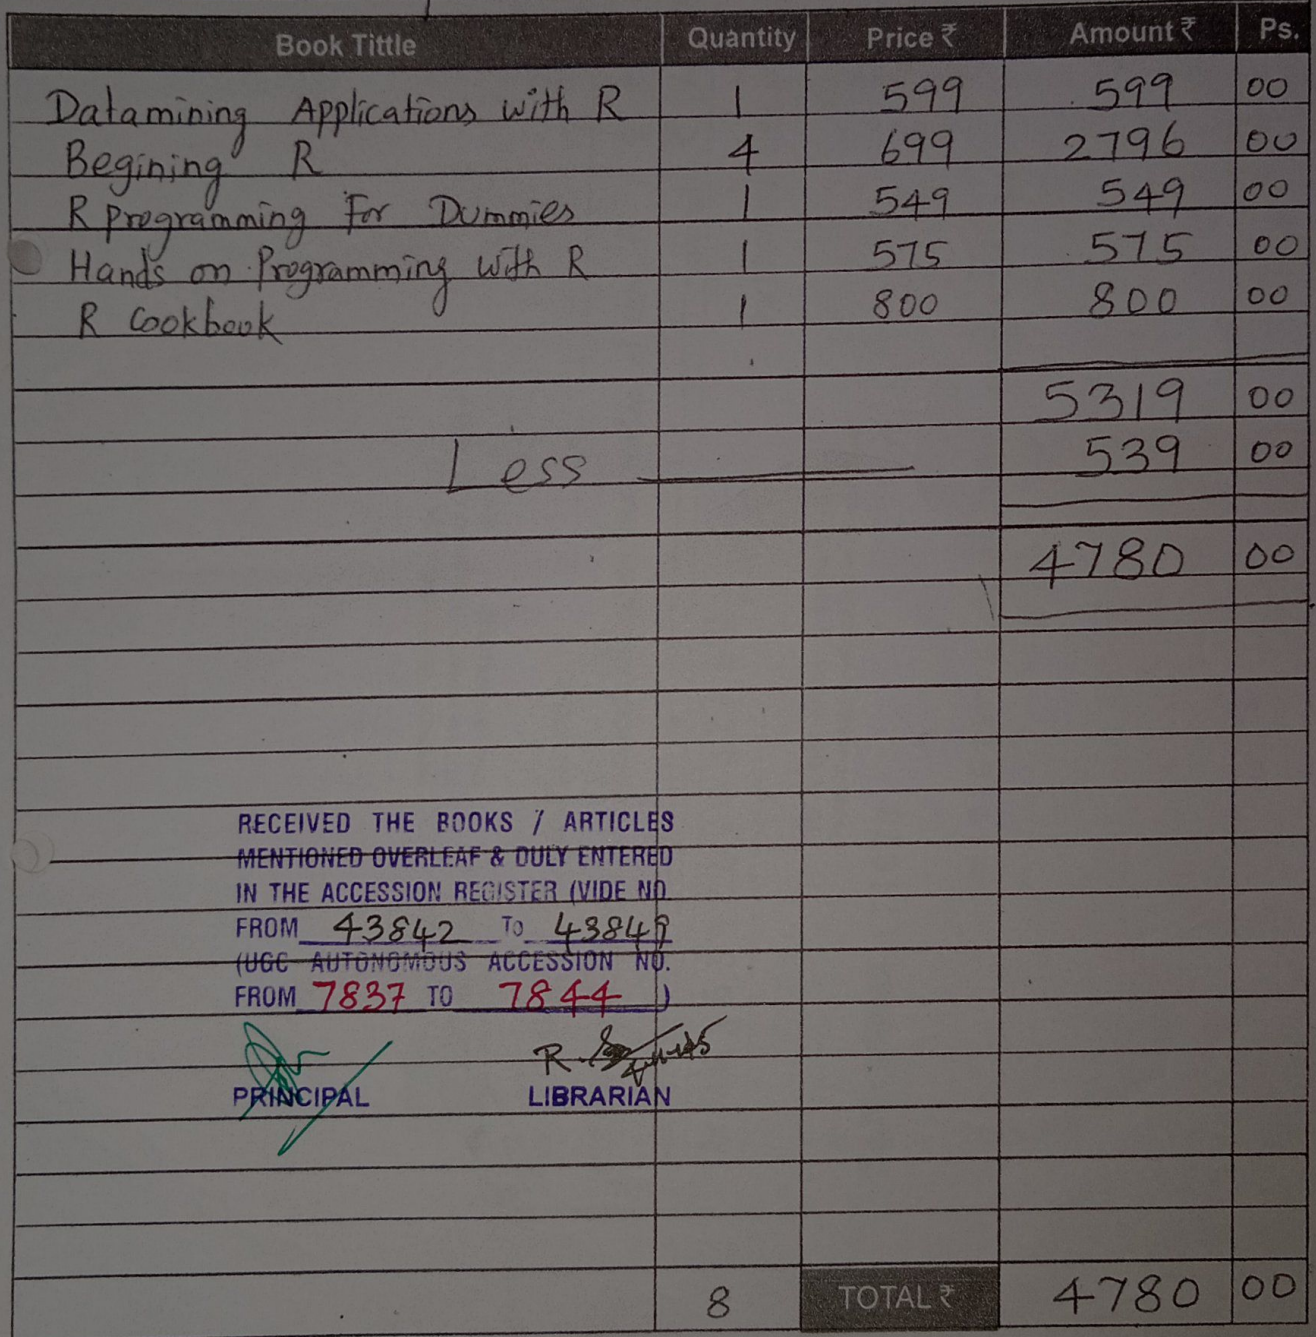 Book Tittle Quantity Price ₹ Amount ₹ Ps.
Datamining Applications with R 1 599 599 00
Begining R 4 699 2796 00
R programming For Dummies 1 549 549 00
Hands on Programming with R 1 575 575 00
R Cookbook 1 800 800 00
5319 00
Less 539 00
4780 00
RECEIVED THE BOOKS / ARTICLES
MENTIONED OVERLEAF & DULY ENTERED
IN THE ACCESSION REGISTER (VIDE NO.
FROM 43842 TO 43849
(UGC AUTONOMOUS ACCESSION NO.
FROM 7837 TO 7844 )
R.
PRINCIPAL LIBRARIAN
8 TOTAL ₹ 4780 00